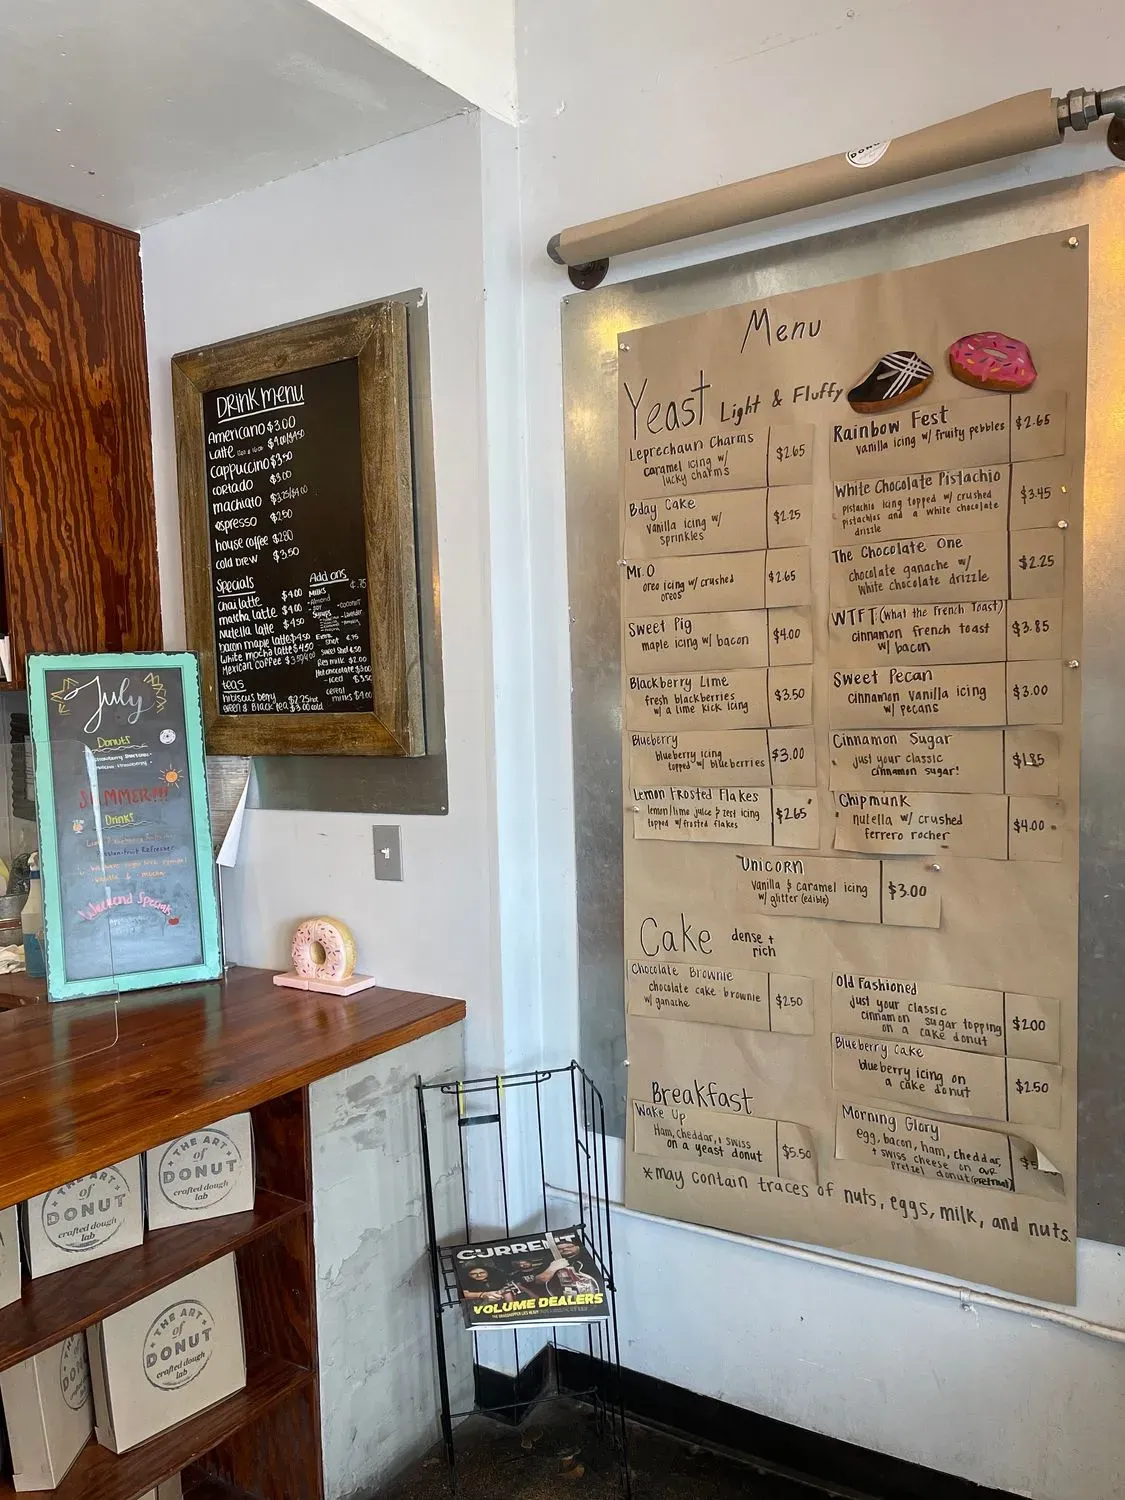 DONU
Menu
Yeast Light & Fluffy
Leprechaun Charms
caramel icing w/
lucky charms
$2.65
Bday Cake
vanilla icing w/
sprinkles
$2.25
Mr. O
oreo icing w/ crushed
oreos
$2.65
Sweet Pig
maple icing w/ bacon
$4.00
Blackberry Lime
fresh blackberries
w/ a lime kick icing
$3.50
Blueberry
blueberry icing
topped w/ blueberries
$3.00
Lemon Frosted Flakes
lemon/lime juice & zest icing
topped w/ frosted flakes
$2.65
Rainbow Fest
vanilla icing w/ fruity pebbles
$2.65
White Chocolate Pistachio
pistachio icing topped w/ crushed
pistachios and a white chocolate
drizzle
$3.45
The Chocolate One
chocolate ganache w/
white chocolate drizzle
$2.25
WTFT (What the French Toast)
cinnamon french toast
w/ bacon
$3.85
Sweet Pecan
cinnamon vanilla icing
w/ pecans
$3.00
Cinnamon Sugar
just your classic
cinnamon sugar!
$1.85
Chipmunk
nutella w/ crushed
ferrero rocher
$4.00
Unicorn
vanilla & caramel icing
w/ glitter (edible)
$3.00
Cake dense +
rich
Chocolate Brownie
chocolate cake brownie
w/ ganache
$2.50
Old Fashioned
just your classic
cinnamon sugar topping
on a cake donut
$2.00
Blueberry Cake
blueberry icing on
a cake donut
$2.50
Breakfast
Wake Up
Ham, cheddar, + swiss
on a yeast donut
$5.50
Morning Glory
egg, bacon, ham, cheddar,
+ swiss cheese on our
pretzel donut (pretnut)
*may contain traces of nuts, eggs, milk, and nuts.
DRINK MENU
Americano $3.00
Latte $4.00/$4.50
cappuccino $3.50
cortado $3.00
machiato $3.75/$4.00
espresso $2.50
house coffee $2.80
cold brew $3.50
Specials
chai latte $4.00
matcha latte $4.00
nutella latte $4.50
bacon maple latte $4.50
white mocha latte $4.50
Mexican coffee $3.50/4.00
teas
hibiscus berry
green & Black tea $2.25 hot
$3.00 cold
Add ons
Milks $.75
-Almond
-soy
-coconut
Syrups
-Lavender
Extra
shot $.75
Sweet Shot $.50
Reg milk $2.00
Hot chocolate $3.00
-iced $3.50
cereal
milks $4.00
July
Donuts
SUMMER!!!
Drinks
Passion-fruit Refresher
vanilla & mocha
Weekend Specials
THE ART
of
DONUT
crafted dough
lab
THE ART
of
DONUT
crafted dough
lab
THE ART
of
DONUT
crafted dough
lab
CURRENT
VOLUME DEALERS